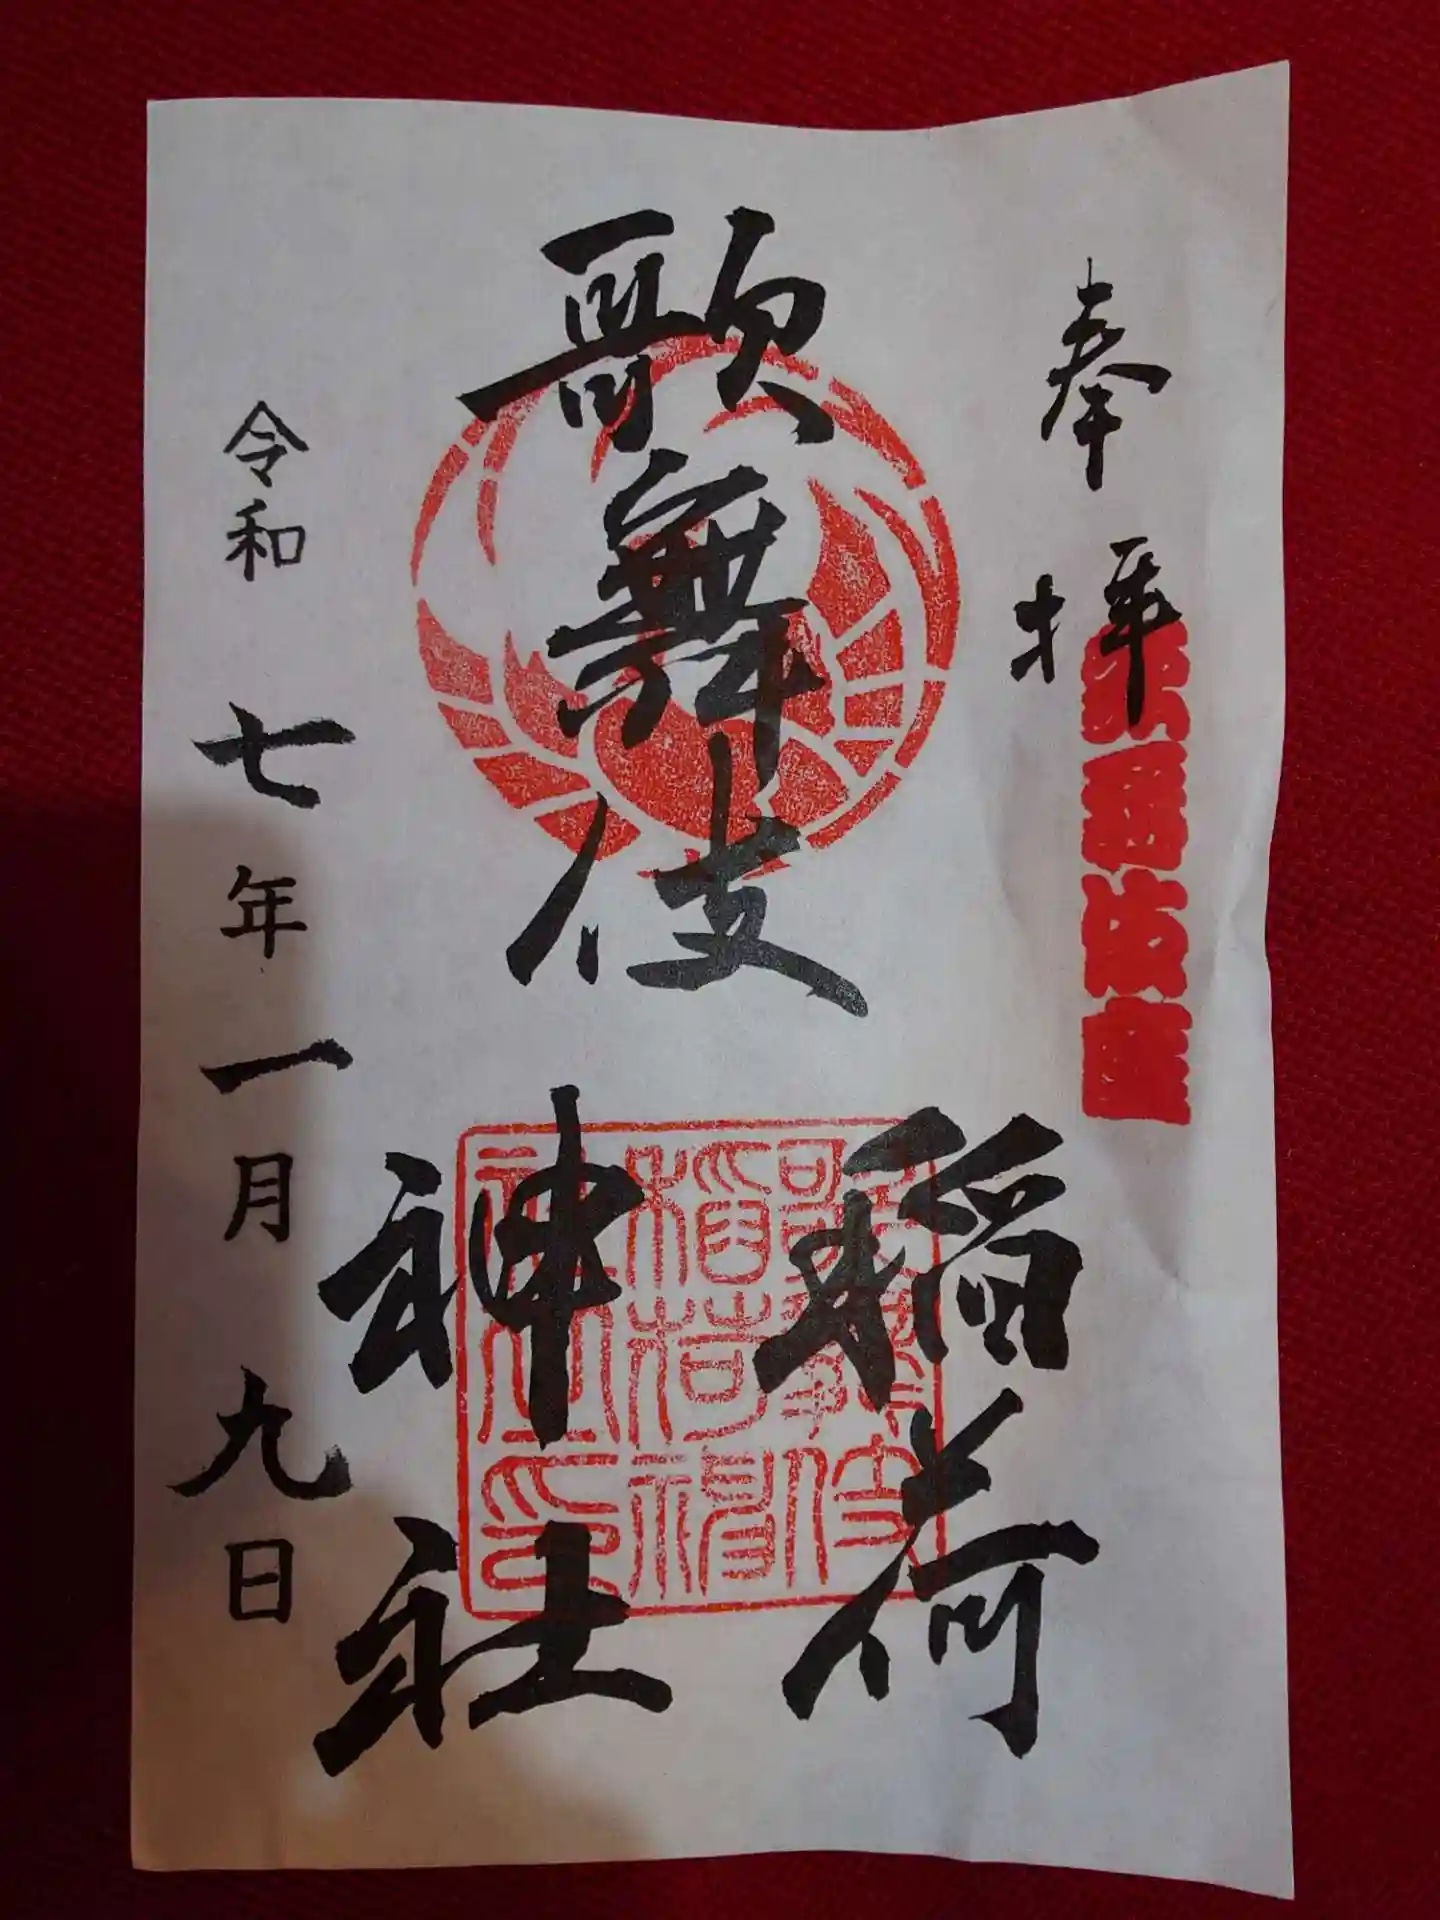 奉拝
歌舞伎座
歌舞伎
稲荷
神社
歌舞伎
稲荷神
社之印
令和七年一月九日